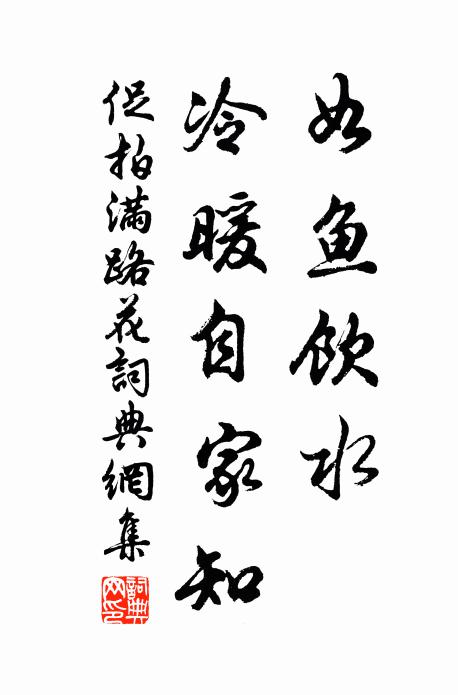 如鱼饮水
冷暖自家知
促拍满路花詞典網集
詞典网印